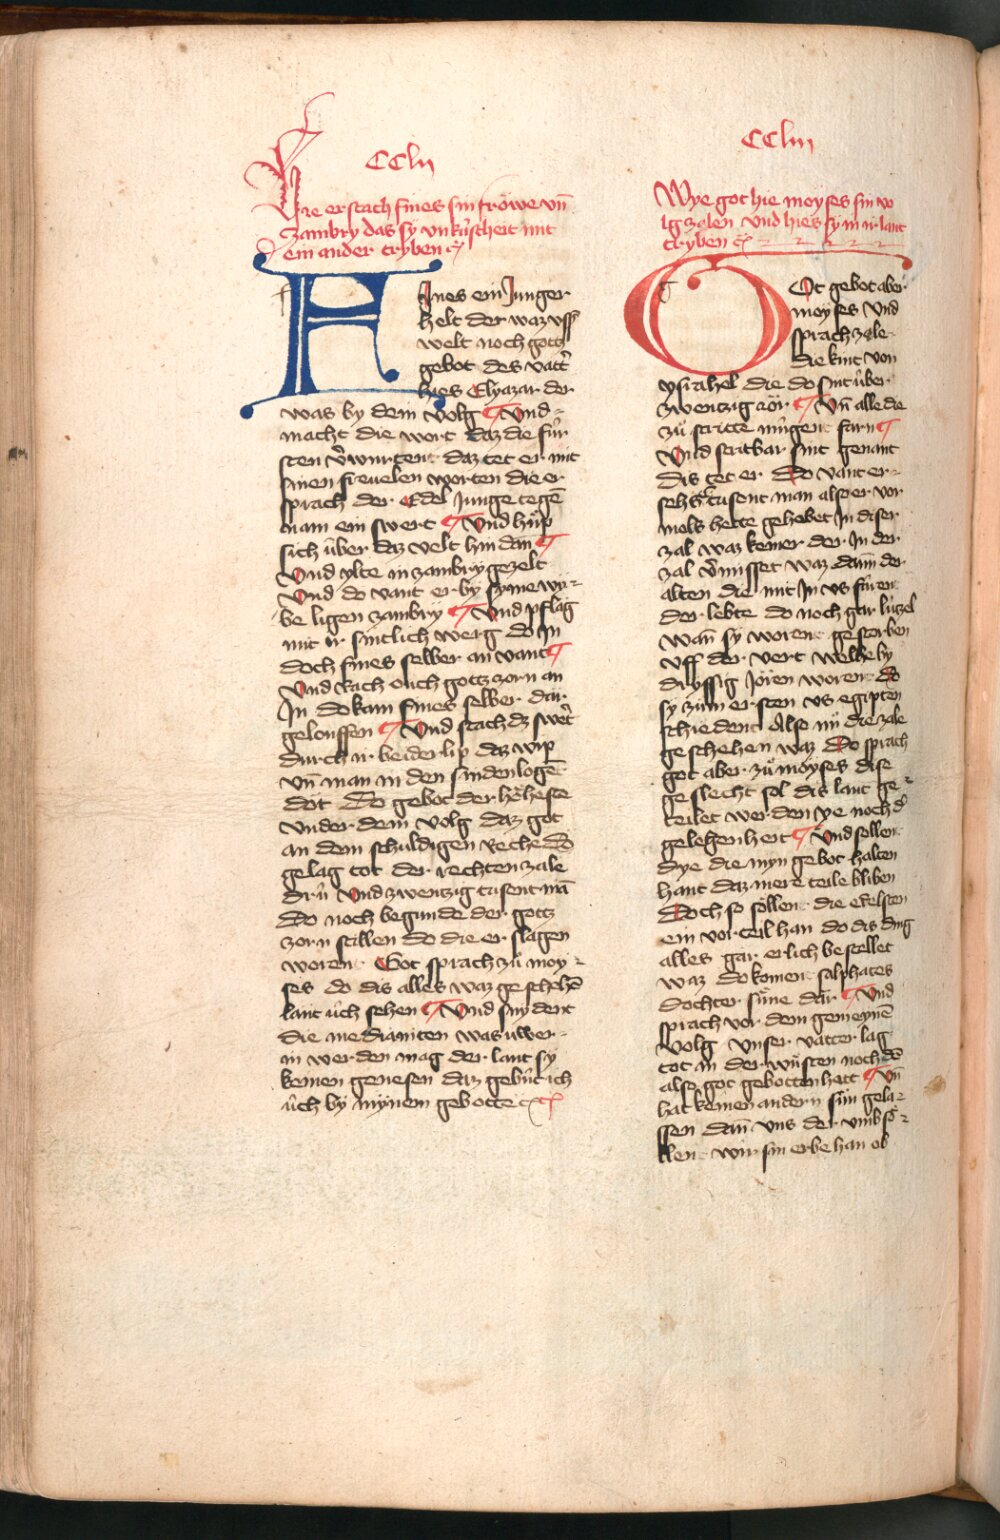 CClii
Hie erstach fines sin frowe vn̄
zambry das sy vnkúscheit mit
ein ander tryben
FInes ein Junger
helt der waz vff
welt noch gottz
gebot des vatt̄
hies Elyazar der
was by dem volg ¶ Vnd
macht die wort daz die fúr
sten v̄wurtent daz tet er mit
sinen freuelen worten die er
sprach der Edel Junge tegē
nam ein swert ¶ Vnd húp
sich úber daz velt hin dan ¶
Vnd ylte in zambry gezelt
Vnd do vant er by syme wi-
be ligen zambry ¶ Vnd pflag
mit ir sintlich werg do Jn
doch fines selber an vant ¶
Vnd rach ouch gottz zorn an
Jn do kam fines selber dar
gelouffen ¶ Vnd stach dz swe't
durch ir beider lip daz wip
vn̄ man in den sinden logē
dot Do gebot der hoͤheste
vnder dem volg daz got
an dem schuldigen reche do
gelag tot der rechten zale
drú Vnd zwentzig tusent mā
Do noch begunde der gottz
zorn stillen do die er slagen
worent Got sprach zu moy-
ses do dis alles waz geschehē
lant úch sehen ¶ Vnd
die medianiten was uwer
in werden mag der lant sy
keinen genesen daz gebút ich
úch by mynem gebotte
CCliii
Wye got hie moyses sin vo
lg zalen vnd hies sy in ir lant
tryben
GOt gebot aber
moyses vnd
sprach zele
die kint von
ysrahel die do sint úber
zwentzig ior ¶ Vn̄ alle die
zu stritte múgent farn ¶
Vnd stritbar sint genant
dis tet er Do vant er
sehs tusent man also er vor
mols hette gehebet Jn diser
zal waz keiner der Jn der
zal v̄misset waz dann der
alten die mit Jn vs fúrent
der lebte do noch gar lúzel
wan sy worent gestorben
vff der vert welhe by
dryssig Joren worent do
sy zum ersten vs egipten
schiedent Also nu die zale
geschehen waz Do sprach
got aber zu moyses dise
geslecht sol dis lant ge-
teilet werden ye noch d'
gelegenheit ¶ Vnd sollent
dye die myn gebot halten
hant daz mere teile bliben
Doch so soͤllent die edelsten
ein vorteil han do dis ding
alles gar erlich bestellet
waz do koment salphates
dochter súne dar ¶ Vnd
sprach vor dem gemeynē
volg Vnser vatter lag
tot in der wústen noch dē
also got gebotten hett ¶ Vn̄
hat keinen andern sun gela-
ssen dan vns der vmb soͤ-
llent wir sin erbe han ob